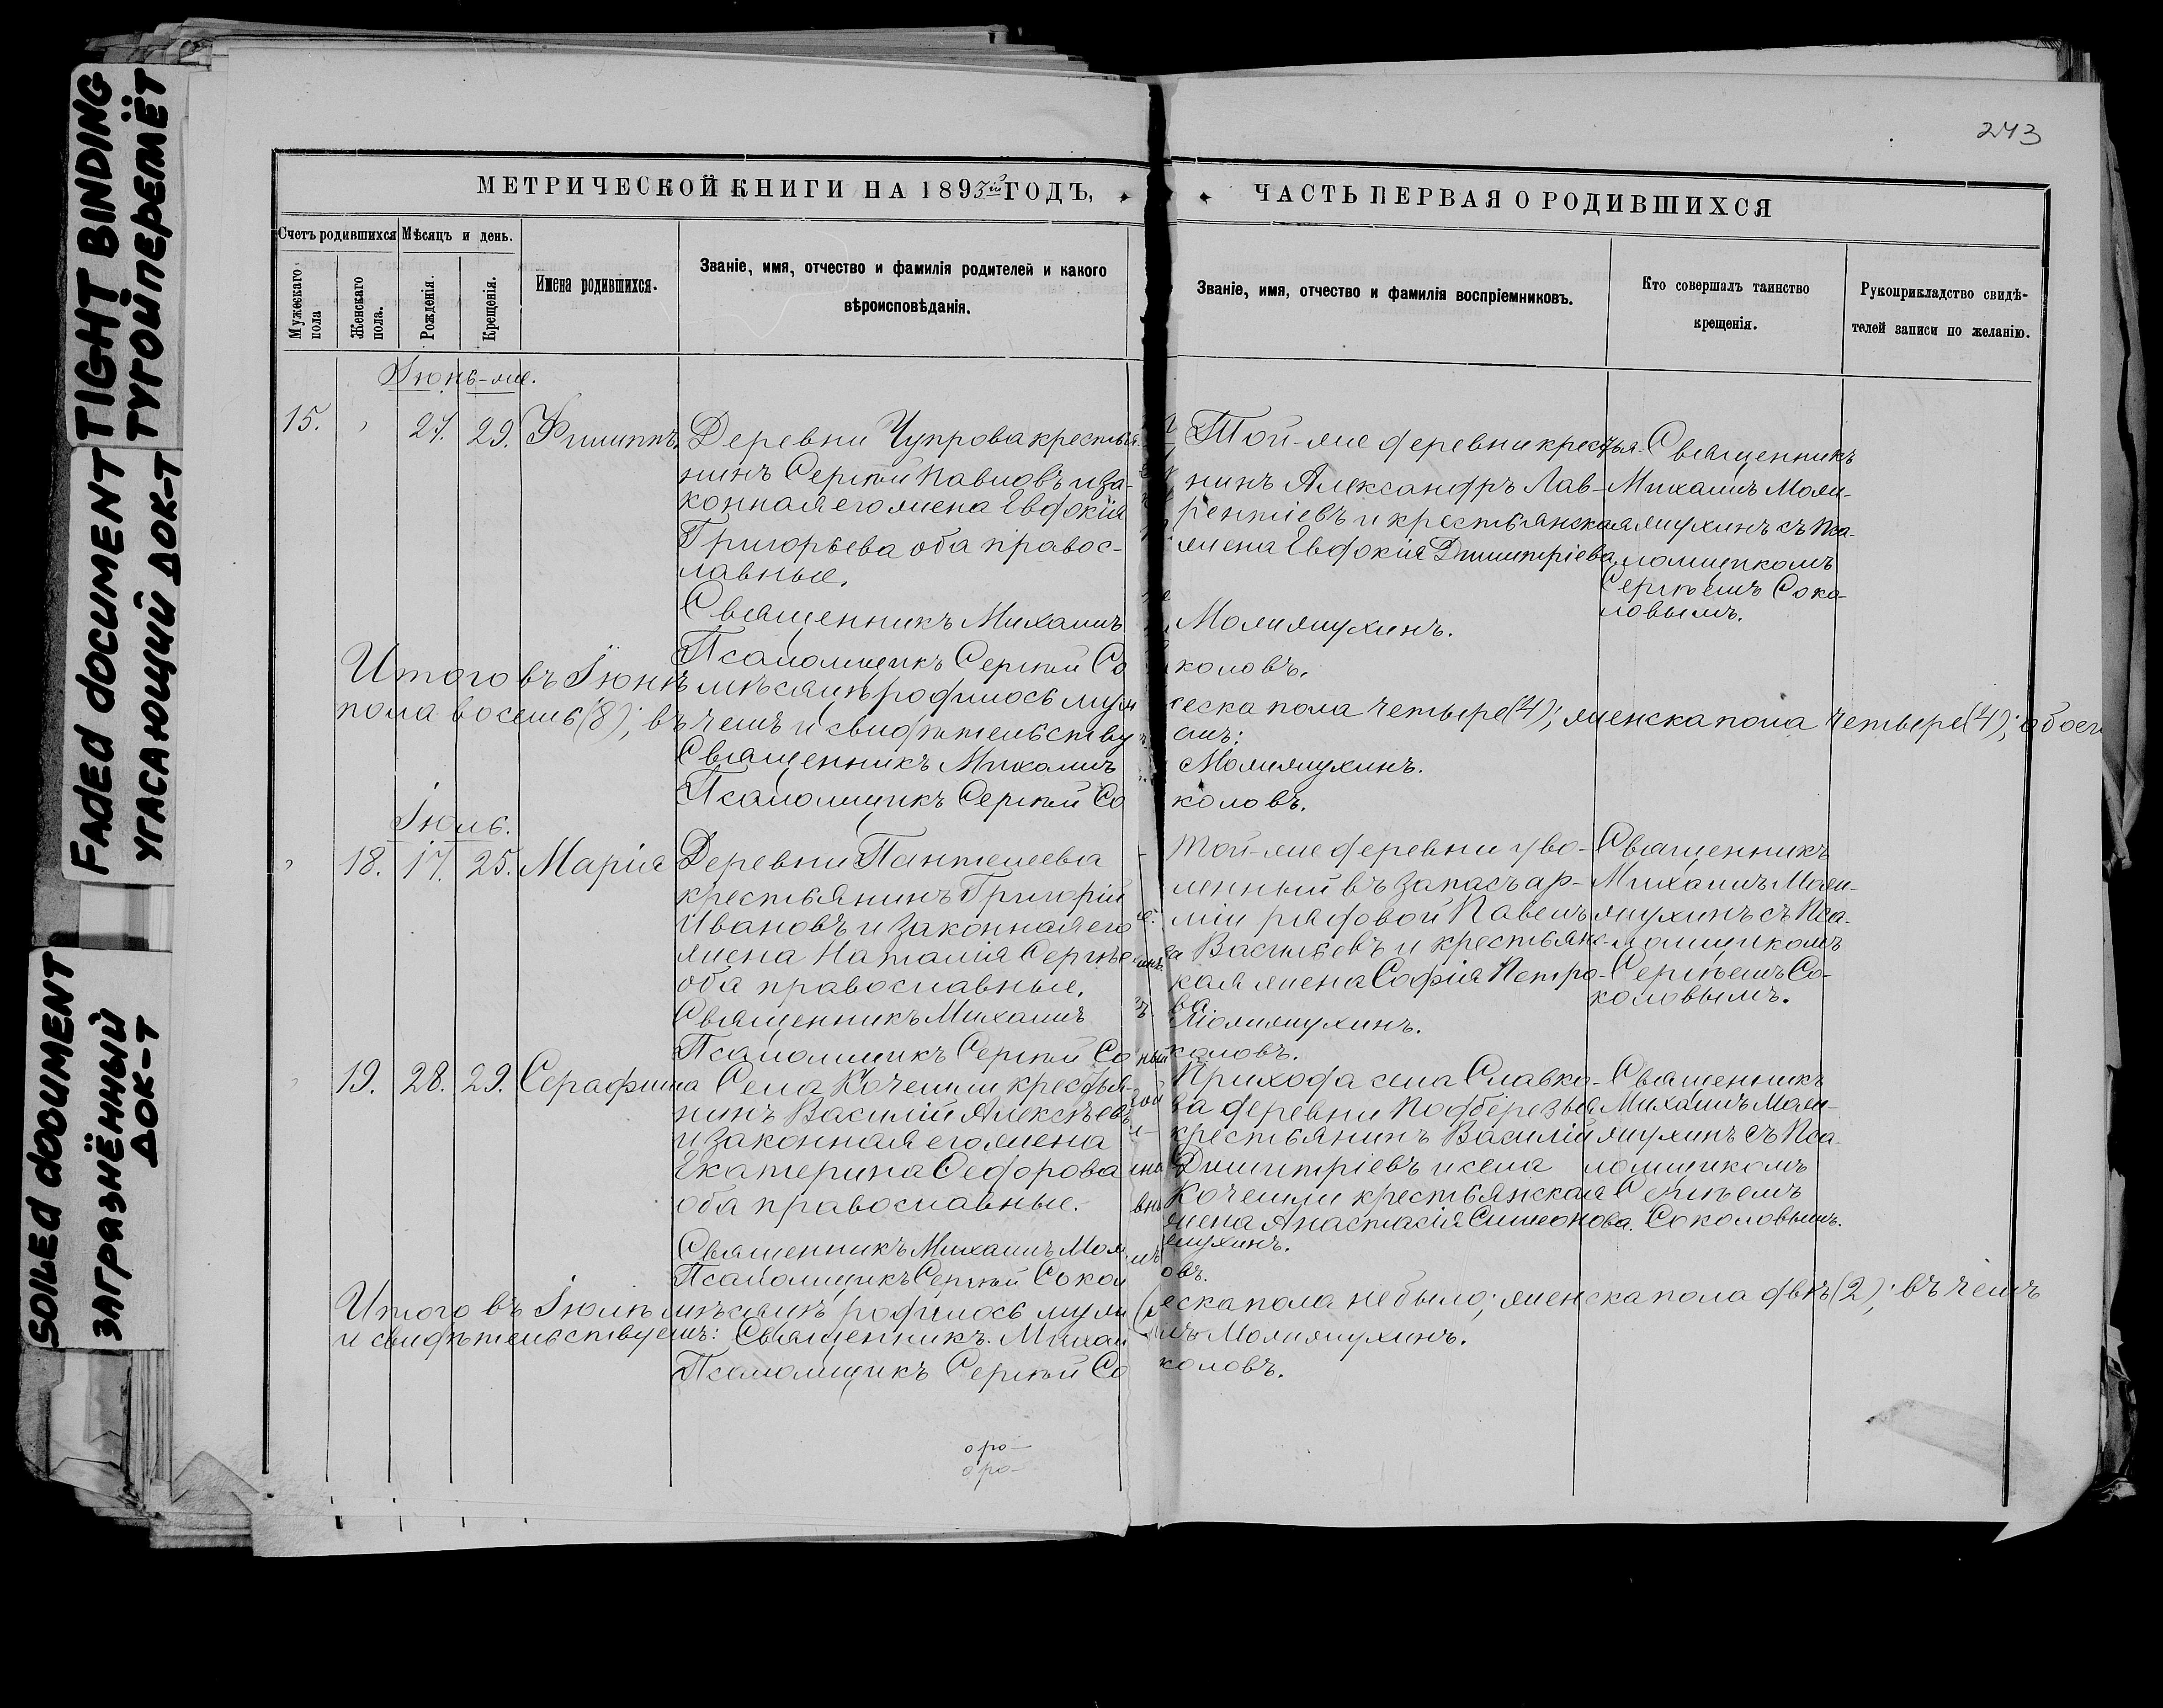 TIGHT BINDING
ТУГОЙ ПЕРЕПЛЁТ
FADED DOCUMENT
УГАСАЮЩИЙ ДОК-Т
SOILED DOCUMENT
ЗАГРЯЗНЁННЫЙ
ДОК-Т
243
МЕТРИЧЕСКОЙ КНИГИ НА 1893ій ГОДЪ,
ЧАСТЬ ПЕРВАЯ О РОДИВШИХСЯ
Счетъ родившихся
Мѣсяцъ и день.
Мужескаго пола
Женскаго пола.
Рожденія.
Крещенія.
Имена родившихся.
Званіе, имя, отчество и фамилія родителей и какого
вѣроисповѣданія.
Званіе, имя, отчество и фамилія воспріемниковъ.
Кто совершалъ таинство
крещенія.
Рукоприкладство свидѣ-
телей записи по желанію.
Іюнь-же.
15.
27.
29.
Филиппъ.
Деревни Чупрова крестья-
нинъ Сергѣй Павловъ и за-
конная его жена Евдокія
Григорьева оба правос-
лавные.
Той-же деревни крестья-
нинъ Александръ Лав-
рентіевъ и крестьянская
жена Евдокія Димитріева
Священникъ
Михаилъ
съ Пса-
ломщикомъ
Сергѣемъ Соко-
ловымъ.
Священникъ Михаилъ
Псаломщикъ Сергѣй Соколовъ.
Итого въ Іюнѣ мѣсяцѣ родилось мужеска пола четыре (4); женска пола четыре (4); обоего
пола восемь (8); въ чемъ и свидѣтельствуемъ:
Священникъ Михаилъ
Псаломщикъ Сергѣй Соколовъ.
Іюль.
18.
17.
25.
Марія
Деревни Пантелеева
крестьянинъ Григорій
Ивановъ и законная его
жена Наталія Сергѣева
оба православные.
той-же деревни уво-
ленный въ запасъ ар-
міи рядовой Павелъ
Васильевъ и крестьянс-
кая жена Софія Петро-
ва.
Священникъ
Михаилъ
съ Пса-
ломщикомъ
Сергѣемъ Со-
коловымъ.
Священникъ Михаилъ
Псаломщикъ Сергѣй Соколовъ.
19.
28.
29.
Серафима
Села Кочемли крестья-
нинъ Василій Алексѣевъ
и законная его жена
Екатерина Ѳедорова
оба православные.
Прихода села Славко-
ва деревни Подберезья
крестьянинъ Василій
Димитріевъ и села
Кочемли крестьянская
жена Анастасія Симеонова.
Священникъ
Михаилъ
съ Пса-
ломщикомъ
Сергѣемъ
Соколовымъ.
Священникъ Михаилъ
Псаломщикъ Сергѣй Соколовъ.
Итого въ Іюлѣ мѣсяцѣ родилось мужеска пола не было; женска пола двѣ (2); въ чемъ
и свидѣтельствуемъ: Священникъ Михаилъ
Псаломщикъ Сергѣй Соколовъ.